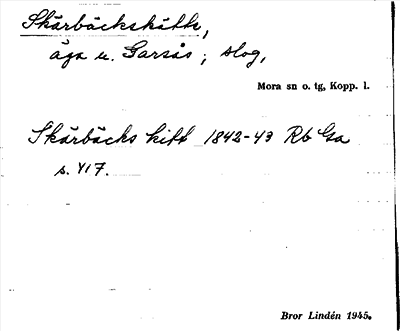 Skärbäckskätt,
äga u. Garsås; slog,
Mora sn o. tg, Kopp. l.
Skärbäcks kitt 1842-43 Rb Gsa
s. 417.
Bror Lindén 1945.